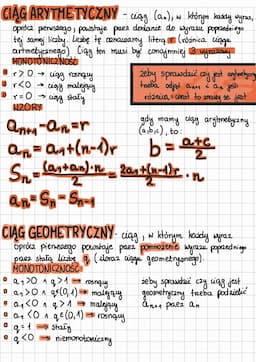 CIĄG ARYTMETYCZNY - ciąg (an), w którym każdy wyraz,
oprócz pierwszego, powstaje przez dodanie do wyrazu poprzedniego
tej samej liczby. Liczbę tę oznaczamy literą r (różnica ciągu
arytmetycznego) Ciąg ten musi być conajmniej 3 wyrazowy
MONOTONICZNOŚĆ
r > 0 → ciąg rosnący
r < 0 → ciąg malejący
r = 0 → ciąg stały
żeby sprawdzić czy jest arytmetyczny
trzeba odjąć an+1 - an jeśli
różnica = const to znaczy że jest
WZORY
an+1 - an = r
an = a1 + (n-1)·r
Sn = (a1+an)·n / 2 = 2a1+(n-1)r / 2 · n
an = Sn - Sn-1
gdy mamy ciąg arytmetyczny
(a,b,c), to:
b = a+c / 2
CIĄG GEOMETRYCZNY - ciąg, w którym każdy wyraz
oprócz pierwszego powstaje przez pomnożenie wyrazu poprzedniego
przez stałą liczbę q, (iloraz ciągu geometrycznego).
MONOTONICZNOŚĆ
a1 > 0 ∧ q > 1 → rosnący
a1 > 0 ∧ q ∈ (0,1) → malejący
a1 < 0 ∧ q > 1 → malejący
a1 < 0 ∧ q ∈ (0,1) → rosnący
q = 1 → stały
q < 0 → niemonotoniczny
żeby sprawdzić czy ciąg jest
geometryczny trzeba podzielić
an+1 przez an